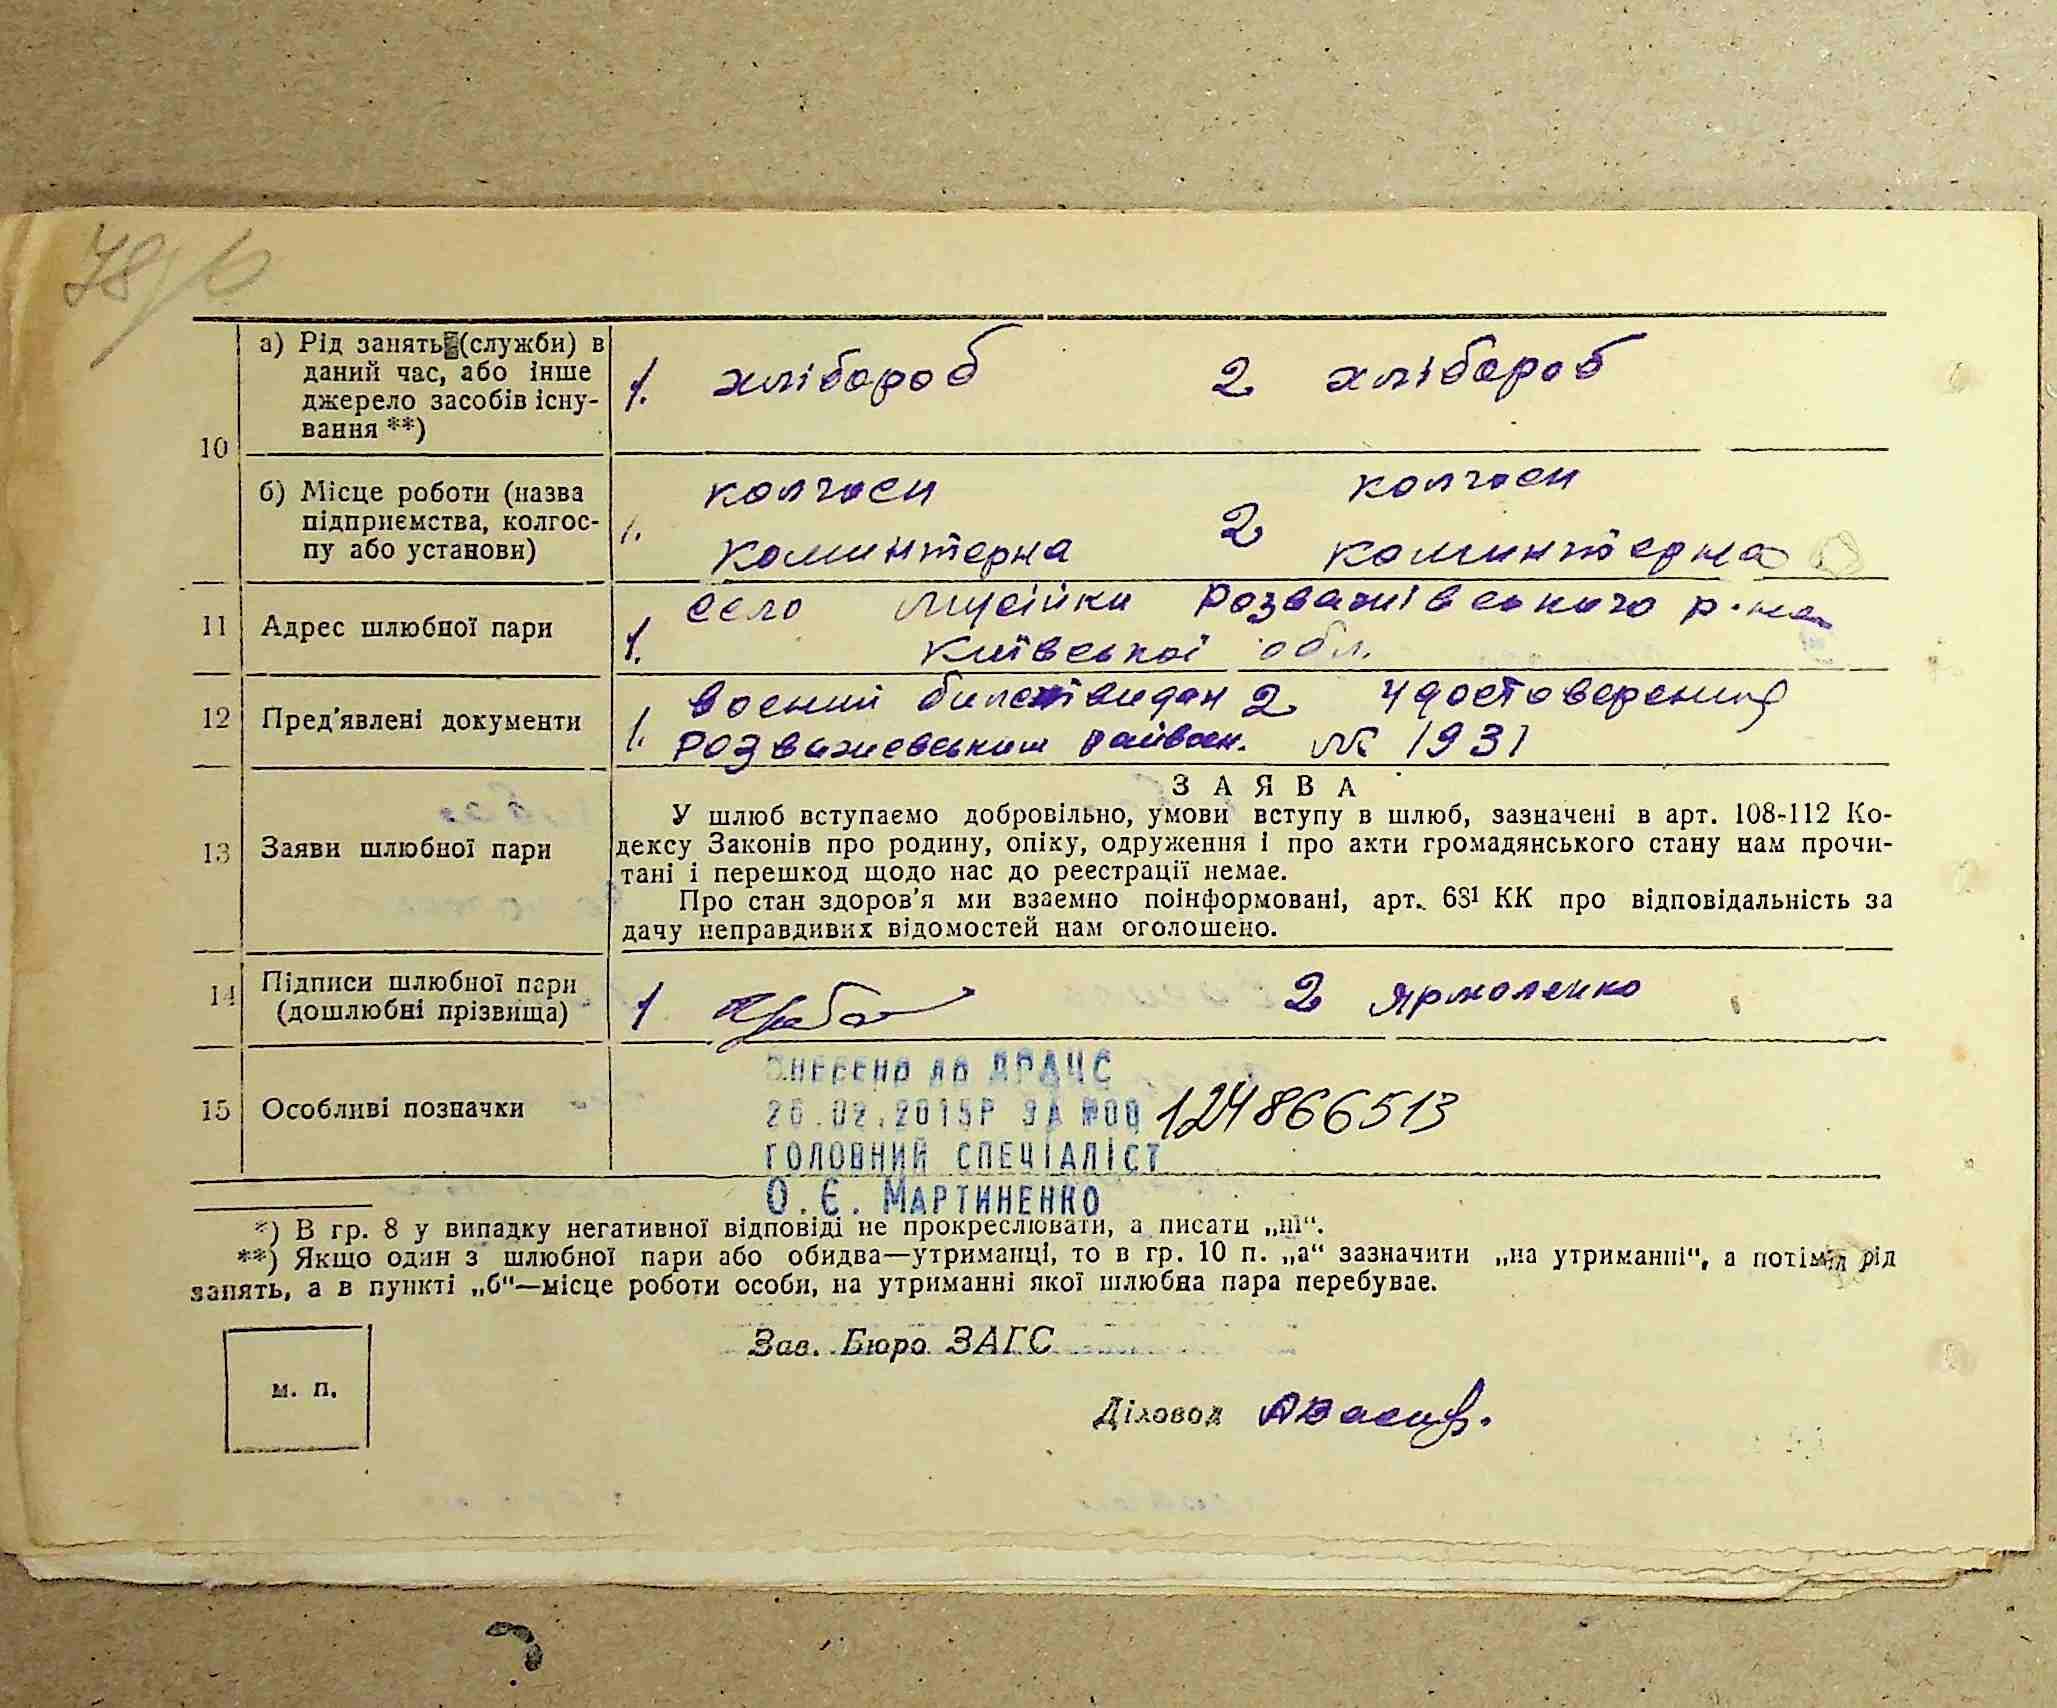 78/б
а) Рід занять (служби) в
даний час, або інше
джерело засобів існу-
вання **)
1. хлібороб 2 хлібороб
10
б) Місце роботи (назва
підприємства, колгос-
пу або установи)
1. колгосп 2 колгосп
коминтерна коминтерна
11 Адрес шлюбної пари
1. село Мусійки Розважівського р-на
Київської обл.
12 Пред'явлені документи
1. воений билет видан 2 удостоверения
Розважевським райвоен. № 1931
13 Заяви шлюбної пари
ЗАЯВА
У шлюб вступаємо добровільно, умови вступу в шлюб, зазначені в арт. 108-112 Ко-
дексу Законів про родину, опіку, одруження і про акти громадянського стану нам прочи-
тані і перешкод щодо нас до реестрації немае.
Про стан здоров'я ми взаемно поінформовані, арт. 68¹ КК про відповідальність за
дачу неправдивих відомостей нам оголошено.
14 Підписи шлюбної пари
(дошлюбні прізвища)
1 2 Ярмоленко
15 Особливі позначки
ВНЕСЕНО ДО ДРАЦС
26.02.2015Р ЗА №00 124866513
ГОЛОВНИЙ СПЕЦІАЛІСТ
О.Є. МАРТИНЕНКО
*) В гр. 8 у випадку негативної відповіді не прокреслювати, а писати „ні“.
**) Якщо один з шлюбної пари або обидва—утриманці, то в гр. 10 п. „а“ зазначити „на утриманні“, а потім рід
занять, а в пункті „б“—місце роботи особи, на утриманні якої шлюбна пара перебувае.
Зав. Бюро ЗАГС
м. п.
Діловод